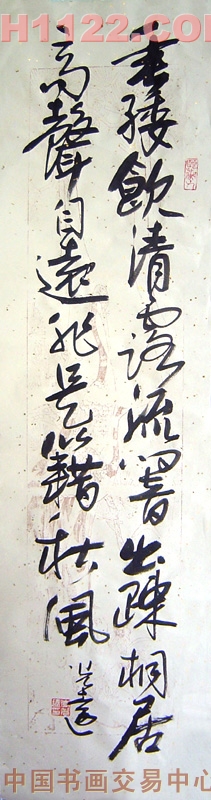 H1122.COM
垂緌飲清露流響出疎桐居
高聲自遠非是籍秋風
中国书画交易中心